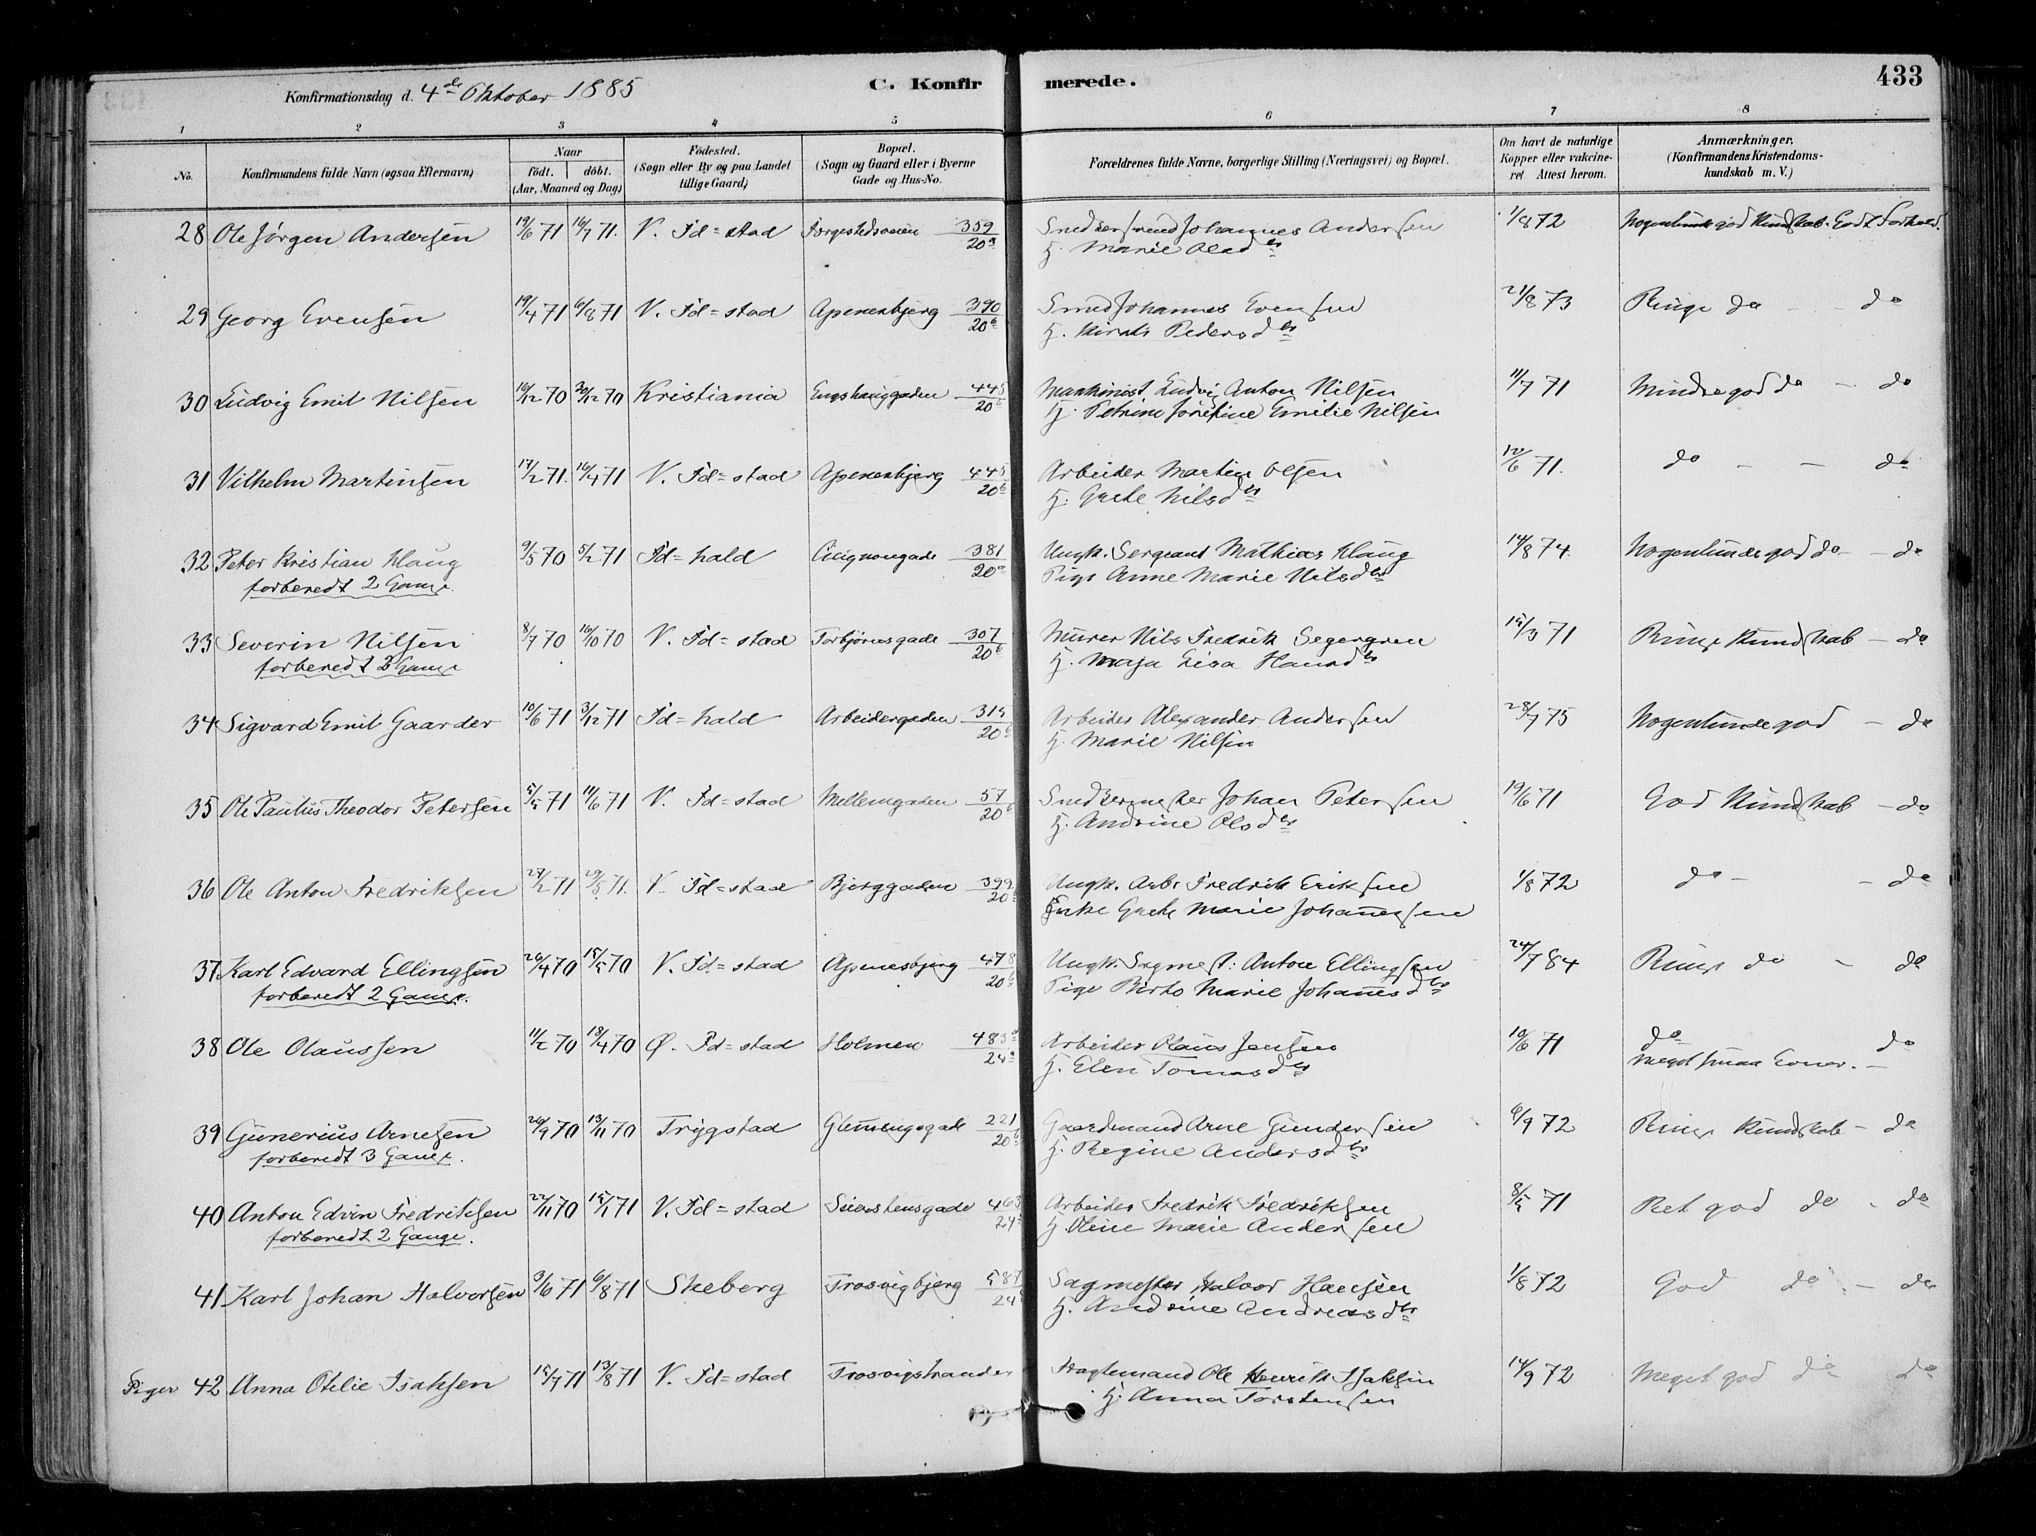 Konfirmationsdag d. 4de Oktober 1885 C. Konfirmerede. 433
1 2 3 4 5 6 7 8
No. Konfirmandens fulde Navn (ogsaa Efternavn) Naar født. døbt. (Aar, Maaned og Dag) Fødested. (Sogn eller By og paa Landet tillige Gaard) Bopæl. (Sogn og Gaard eller i Byerne Gade og Hus-No. Forældrenes fulde Navne, borgerlige Stilling (Næringsvei) og Bopæl. Om havt de naturlige Kopper eller vakcineret Attest herom. Anmærkninger. (Konfirmandens Kristendomskundskab m. V.)
28 Ole Jørgen Andersen 19/6 71 16/7 71. V. Fd=stad 359/20a Snedkersvend Johannes Andersen 1/8 72 Nogenlunde god Kundskab. Godt Forhold.
H. Marie Olsdtr
29 Georg Evensen 19/4 71 6/8 71 V. Fd=stad Apenesbjerg 390/20b Smed Johannes Evensen 21/8 73 Ringe do - do
H. Pedersdtr
30 Ludvig Emil Nilsen 16/12 70 30/12 70 Kristiania Engshauggaden 445/20b Maskinist Ludvig Anton Nilsen 11/7 71 Mindre god do - do
H. Petrine Josefine Emilie Nilsen
31 Vilhelm Martinsen 17/2 71. 16/4 71 V. Fd=stad Apenesbjerg 445/20b Arbeider Martin Olsen 12/6 71. do - - do
H. Grete Nilsdtr
32 Peter Kristian Haug 9/5 70 5/2 71 Fd=hald Cicignongade 381/20a Ungk. Sergeant Mathias Haug 14/8 74. Nogenlunde god do - do
forberedt 2 Gange. Pige Anne Marie Nilsdtr
33 Severin Nilsen 8/7 70 16/10 70 V. Fd=stad Torbjørnsgade 307/20b Murer Nils Fredrik Segergren 15/3 71 Ringe Kundskab - do
forberedt 3 Gange H. Maja Lisa Hansdtr
34 Sigvard Emil Gaarder 10/6 71 3/12 71 Fd=hald Arbeidergaden 315/20b Arbeider Alexander Andersen 28/7 75 Nogenlunde god - do
H. Marie Nilsen
35 Ole Paulus Theodor Petersen 5/5 71 11/6 71 V. Fd=stad Mellemgaden 57/20b Snedkermester Johan Petersen 19/6 71 God Kundskab - do
H. Andrine Olsdtr
36 Ole Anton Fredriksen 27/2 71 29/5 71. V. Fd=stad Bjerggaden 399/20b Ungk. Arb. Fredrik Eriksen 1/8 72 do - - do
Enke Grete Marie Johannessen
37 Karl Edvard Ellingsen 26/4 70 15/5 70 V. Fd=stad Apenesbjerg 478/20b Ungk. Sagmest: Anton Ellingsen 24/7 84 Ringe do - do
forberedt 2 Gange. Pige Marie Johannesdtr
38 Ole Olaussen 11/2 70 18/4 70 Ø. Fd=stad Holmen 483a/24a Arbeider Olaus Jensen 10/6 71 do do
H. Elen Tomasdtr meget smaa Evner. -
39 Gunerius Arnesen 26/9 70 13/11 70 Trygstad Glemmingegade 221/20b Gaardmand Arne Gundersen 6/9 72 Ringe Kundskab - do
forberedt 3 Gange. H. Regine Andersdtr
40 Anton Edvin Fredriksen 22/11 70 15/1 71 V. Fd=stad 463/24 Arbeider Fredrik Fredriksen 8/5 71 Ret god do - do
forberedt 2 Gange. H. Oline Marie Andersen
41 Karl Johan Halvorsen 3/6 71 6/8 71 Skeberg Trosvigbjerg 587/24 Sagmester Halvor Hansen 1/8 72 God do - do
H. Andrine Andreasdtr
Piger 42 Anna Otilie Isaksen 15/7 71 13/8 71 V. Fd=stad Trosvigstranden Ole Henrik Isaksen 14/9 72 Meget god do do
H. Anna Torstensen